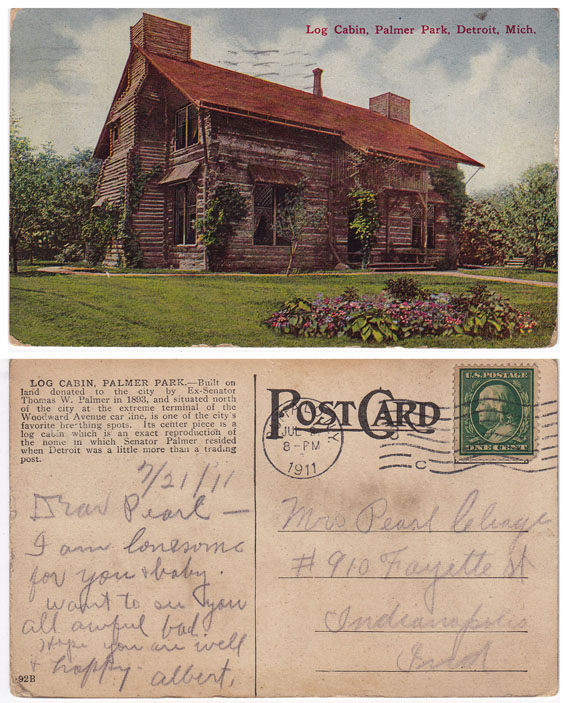 Log Cabin, Palmer Park, Detroit, Mich.
LOG CABIN, PALMER PARK.—Built on
land donated to the city by Ex-Senator
Thomas W. Palmer in 1893, and situated north
of the city at the extreme terminal of the
Woodward Avenue car line, is one of the city's
favorite breathing spots. Its center piece is a
log cabin which is an exact reproduction of
the home in which Senator Palmer resided
when Detroit was a little more than a trading
post.
7/21/11
Dear Pearl —
I am lonesome
for you & baby.
want to see you
all awful bad.
Hope you are well
& happy.
Albert.
92B
POST CARD
JUL
8-PM
1911
U.S. POSTAGE
ONE CENT
Mrs Pearl Cleage
# 910 Fayette St
Indianapolis
Ind